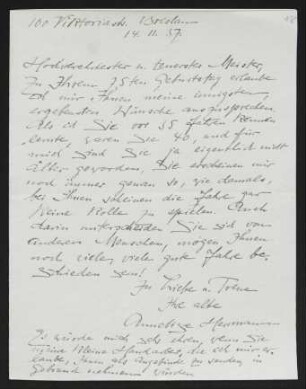 100 Viktoriastr. Potsdam
14. 11. 37.
Hochverehrter u teuerster Meister,
Zu Ihrem 75ten Geburtstag erlaube
ich mir Ihnen meine innigsten,
ergebensten Wünsche auszusprechen.
Als ich Sie vor 35 Jahren kennen
lernte, waren Sie 40, und für
mich sind Sie ja eigentlich nicht
älter geworden. Sie erscheinen mir
noch immer genau so, wie damals,
bei Ihnen scheinen die Jahre gar
keine Rolle zu spielen. Auch
darin unterscheiden Sie sich von
anderen Menschen, mögen Ihnen
noch viele, viele gute Jahre be-
schieden sein!
In Liebe u Treue
Ihre alte
Anneliese
Es würde mich sehr ehren, wenn Sie
kleine Handarbeit, die ich mir er-
laube, Ihnen als Angebinde zu senden in
Gebrauch nehmen würden